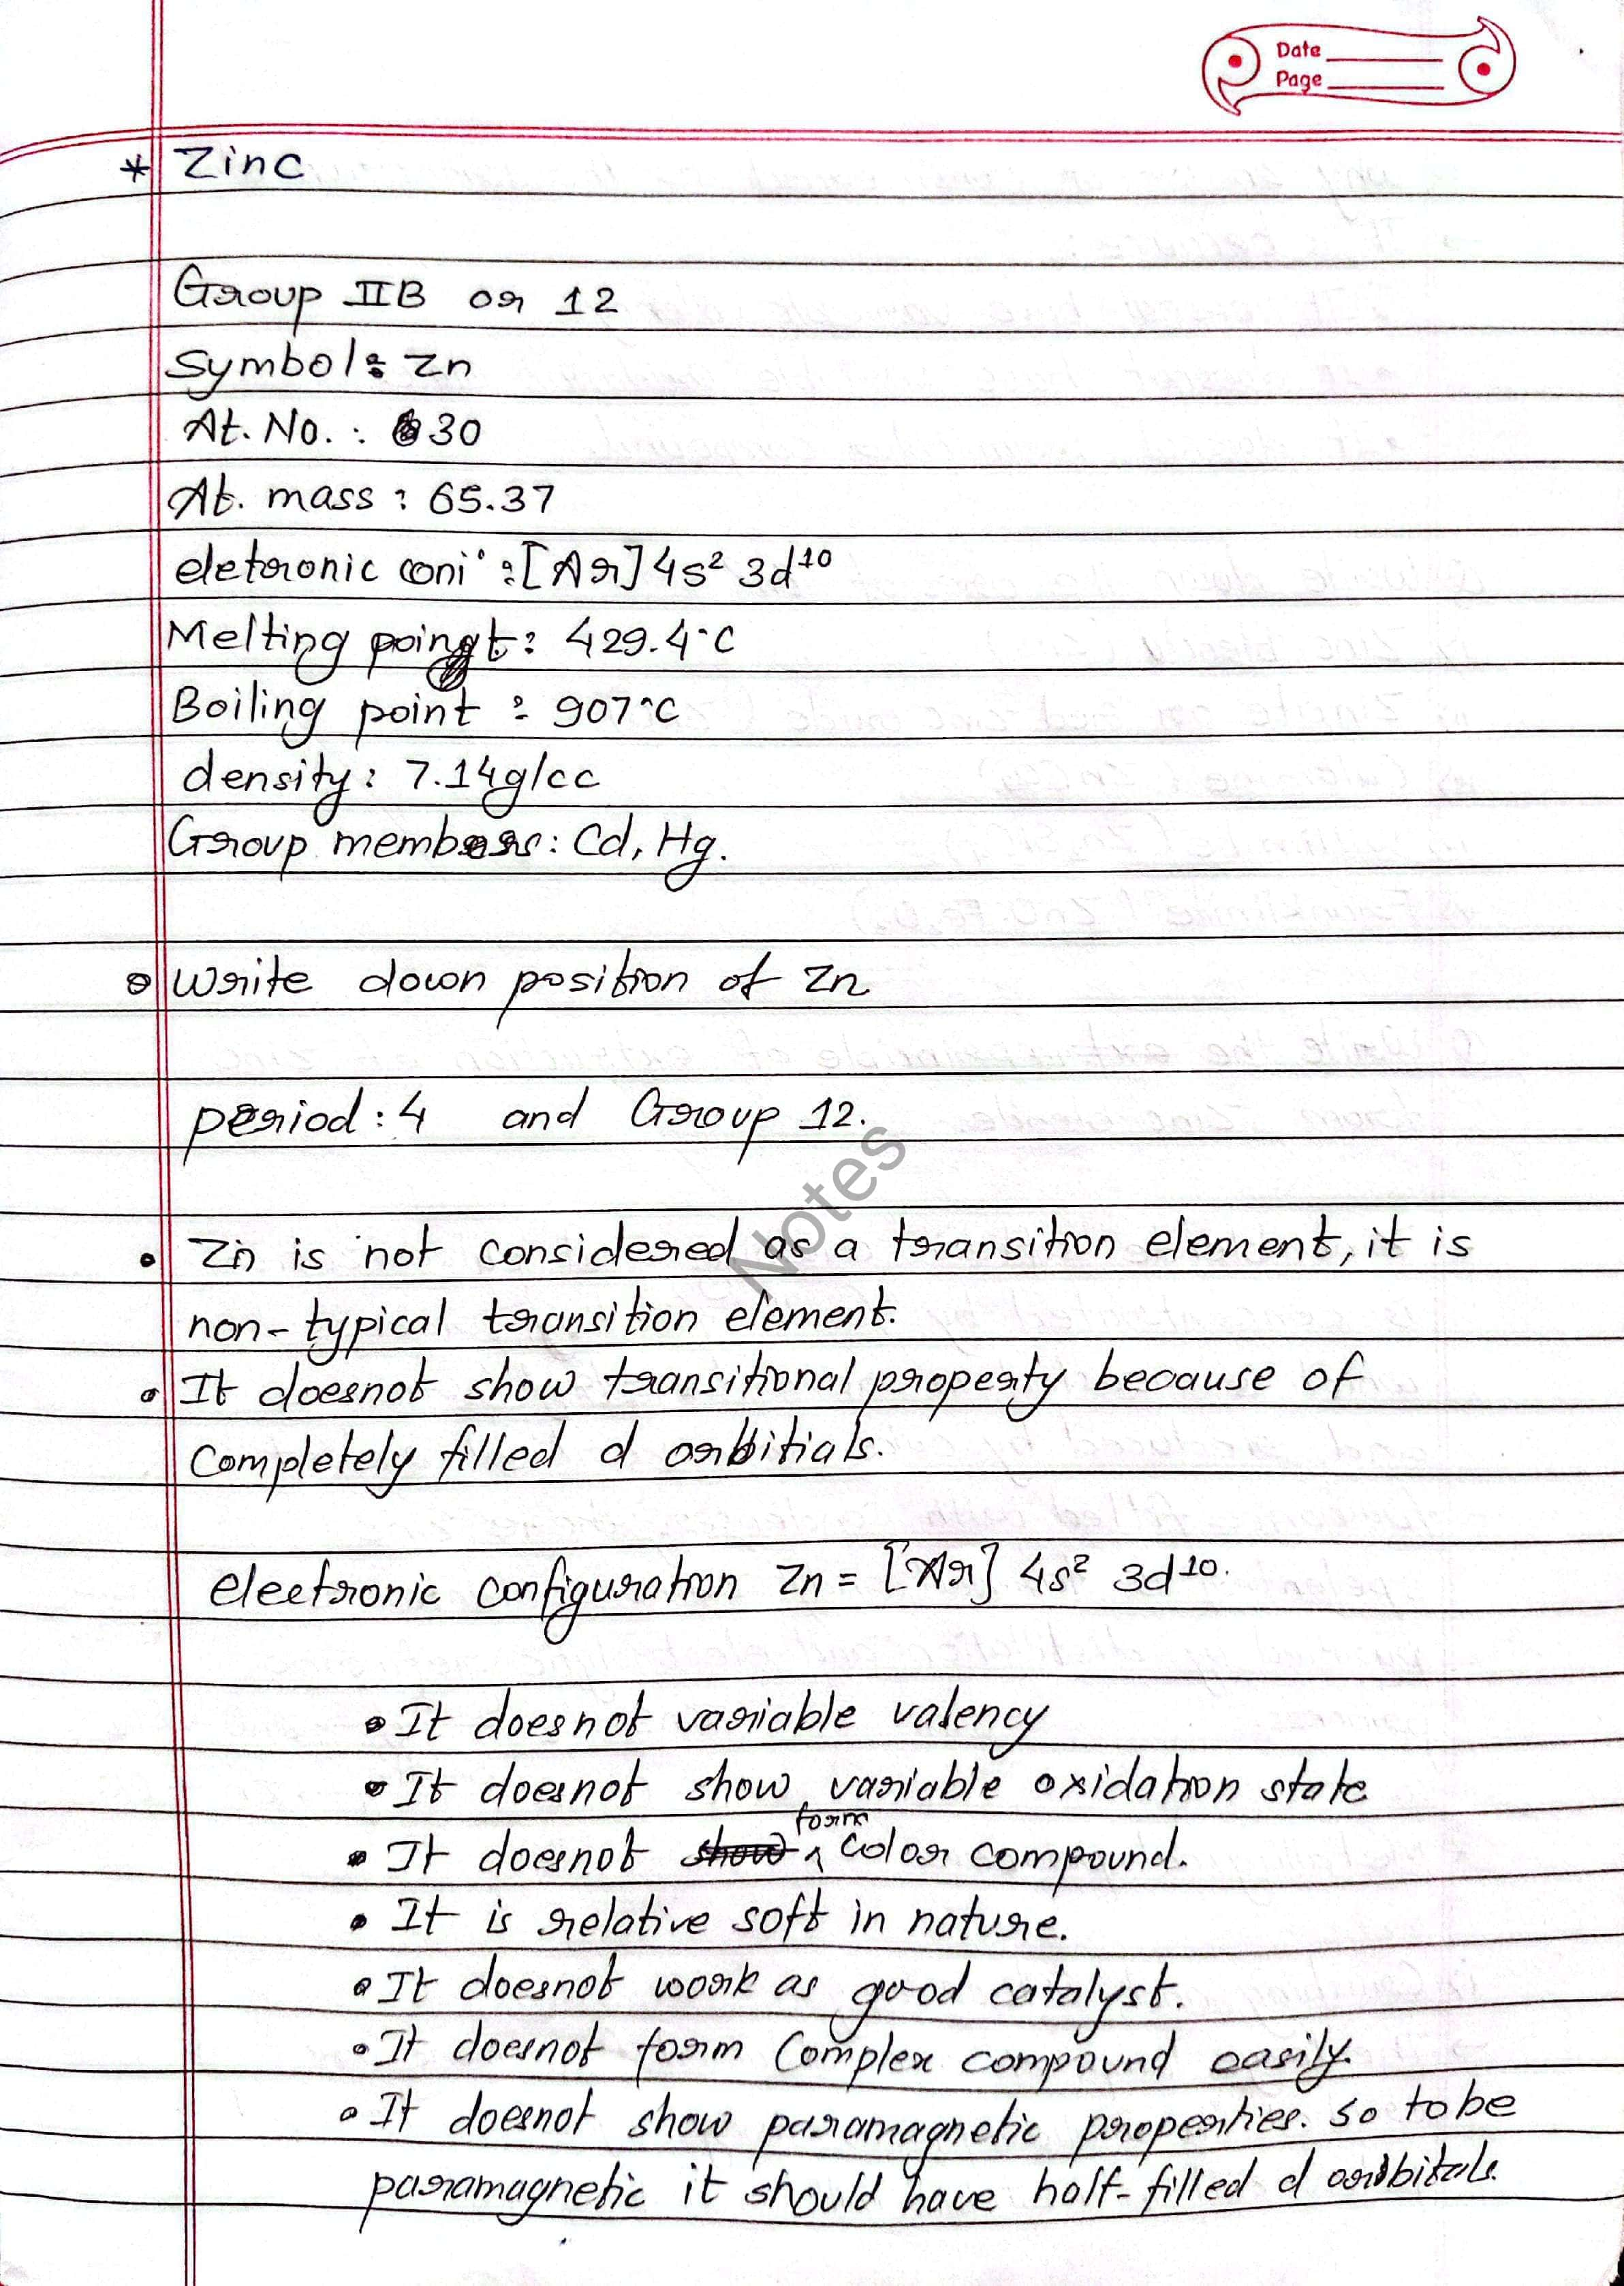 Date
Page
* Zinc
Group IIB or 12
Symbol: Zn
At. No. : 30
At. mass : 65.37
eletoronic coni' : [Ar] 4s² 3d¹⁰
Melting poingt: 429.4°C
Boiling point : 907°C
density: 7.14g/cc
Group members: Cd, Hg.
Write down position of Zn
period: 4 and Group 12.
Notes
• Zn is not considered as a transition element, it is
non-typical transition element.
• It doesnot show transitional property because of
completely filled d orbitials.
electronic configuration Zn = [Ar] 4s² 3d¹⁰.
• It doesnot variable valency
• It doesnot show variable oxidation state
• It doesnot show form color compound.
• It is relative soft in nature.
• It doesnot work as good catalyst.
• It doesnot form Complex compound easily.
• It doesnot show paramagnetic properties. So to be
paramagnetic it should have half-filled d orbitals.